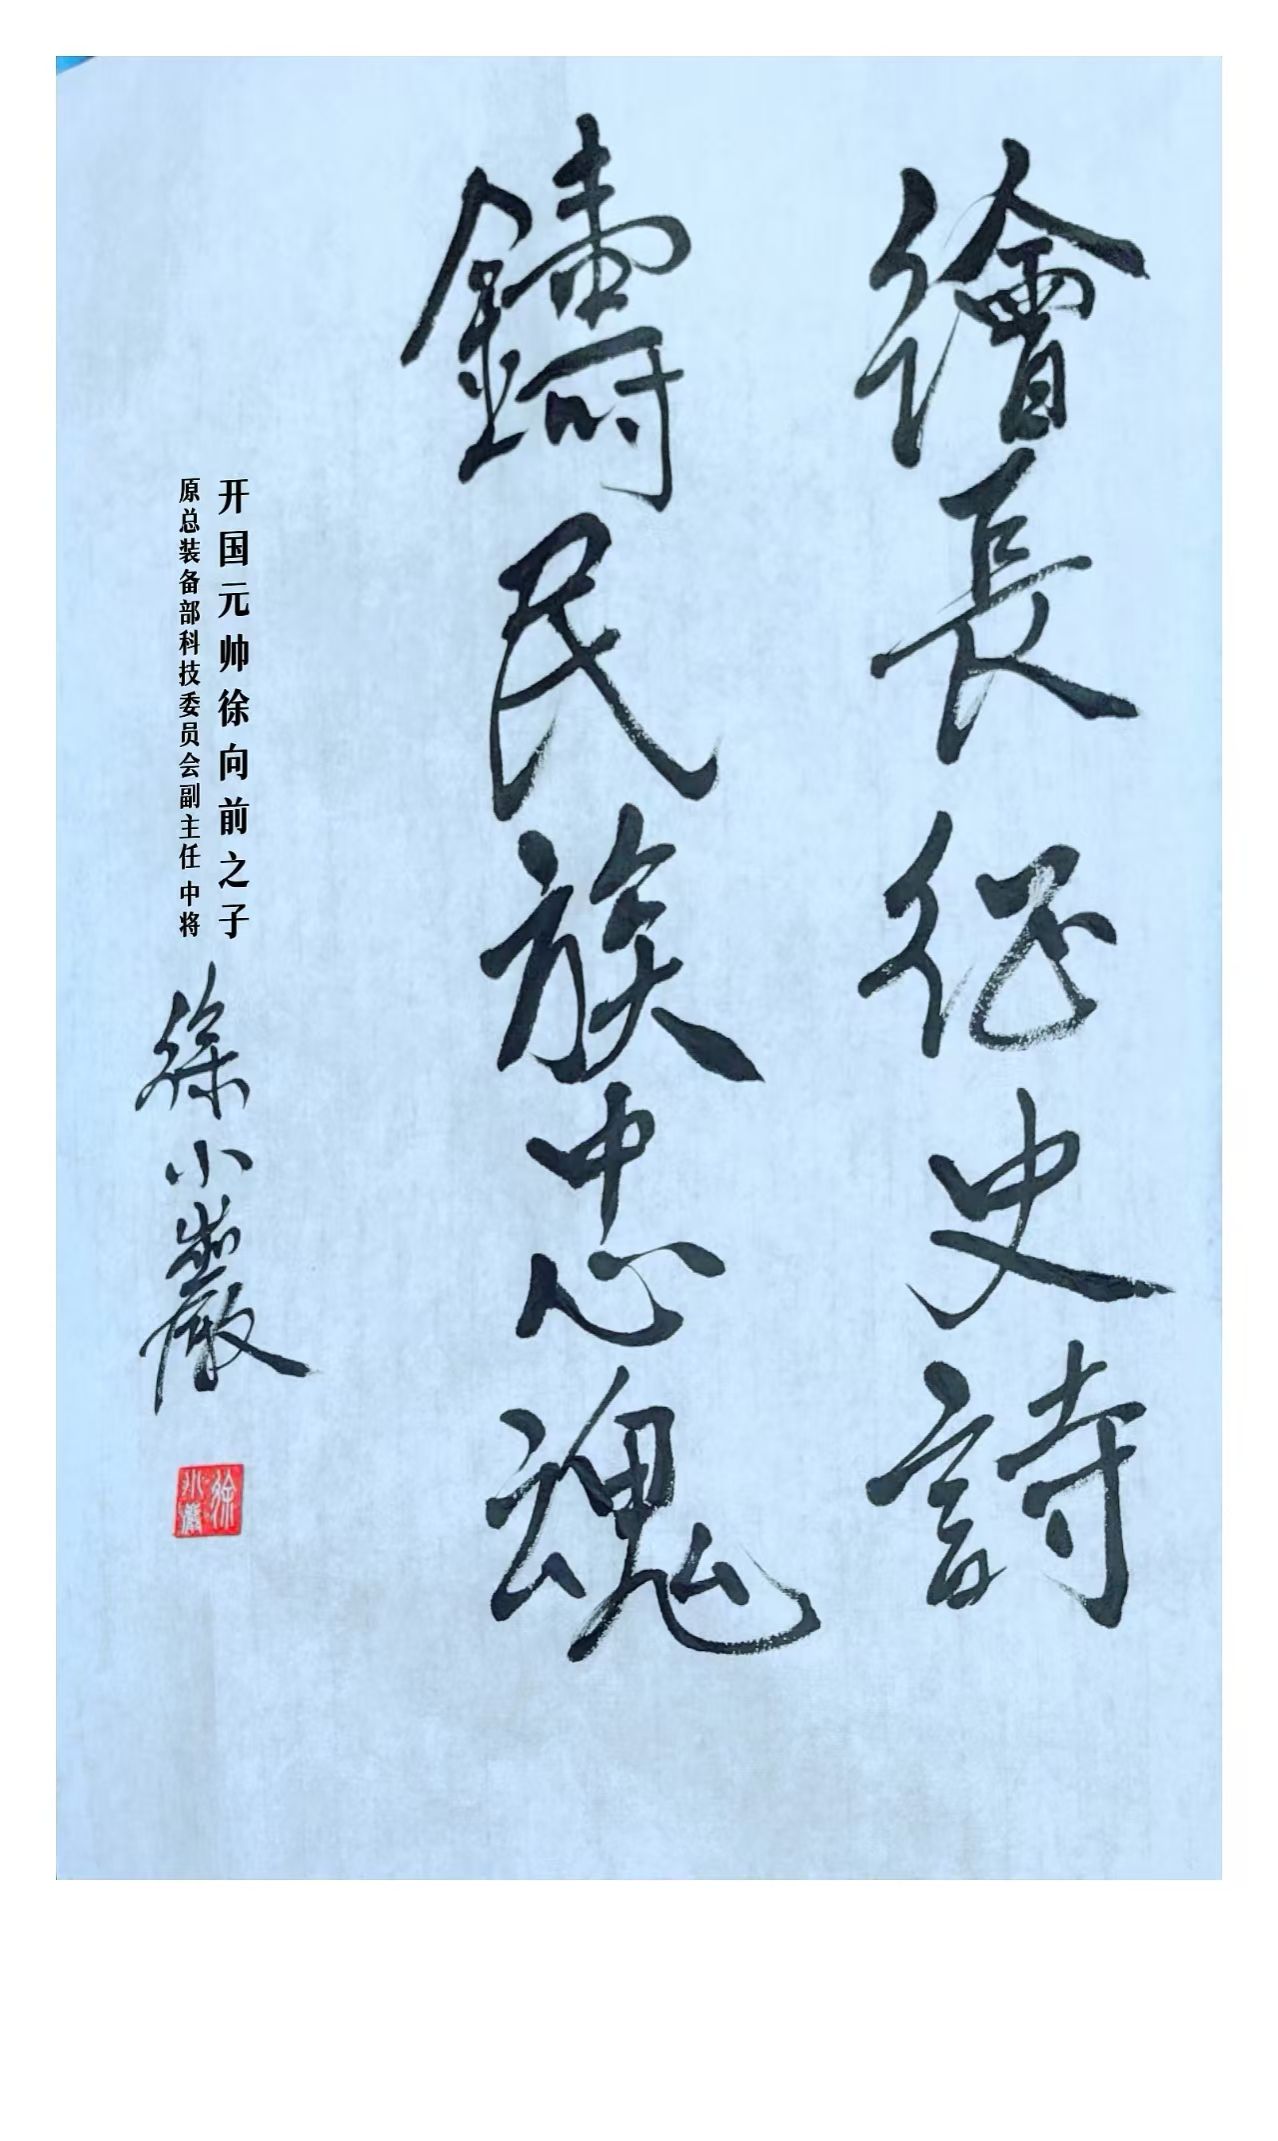 繪長征史詩
鑄民族忠魂
开国元帅徐向前之子
原总装备部科技委员会副主任 中将
徐小巖
徐小巖